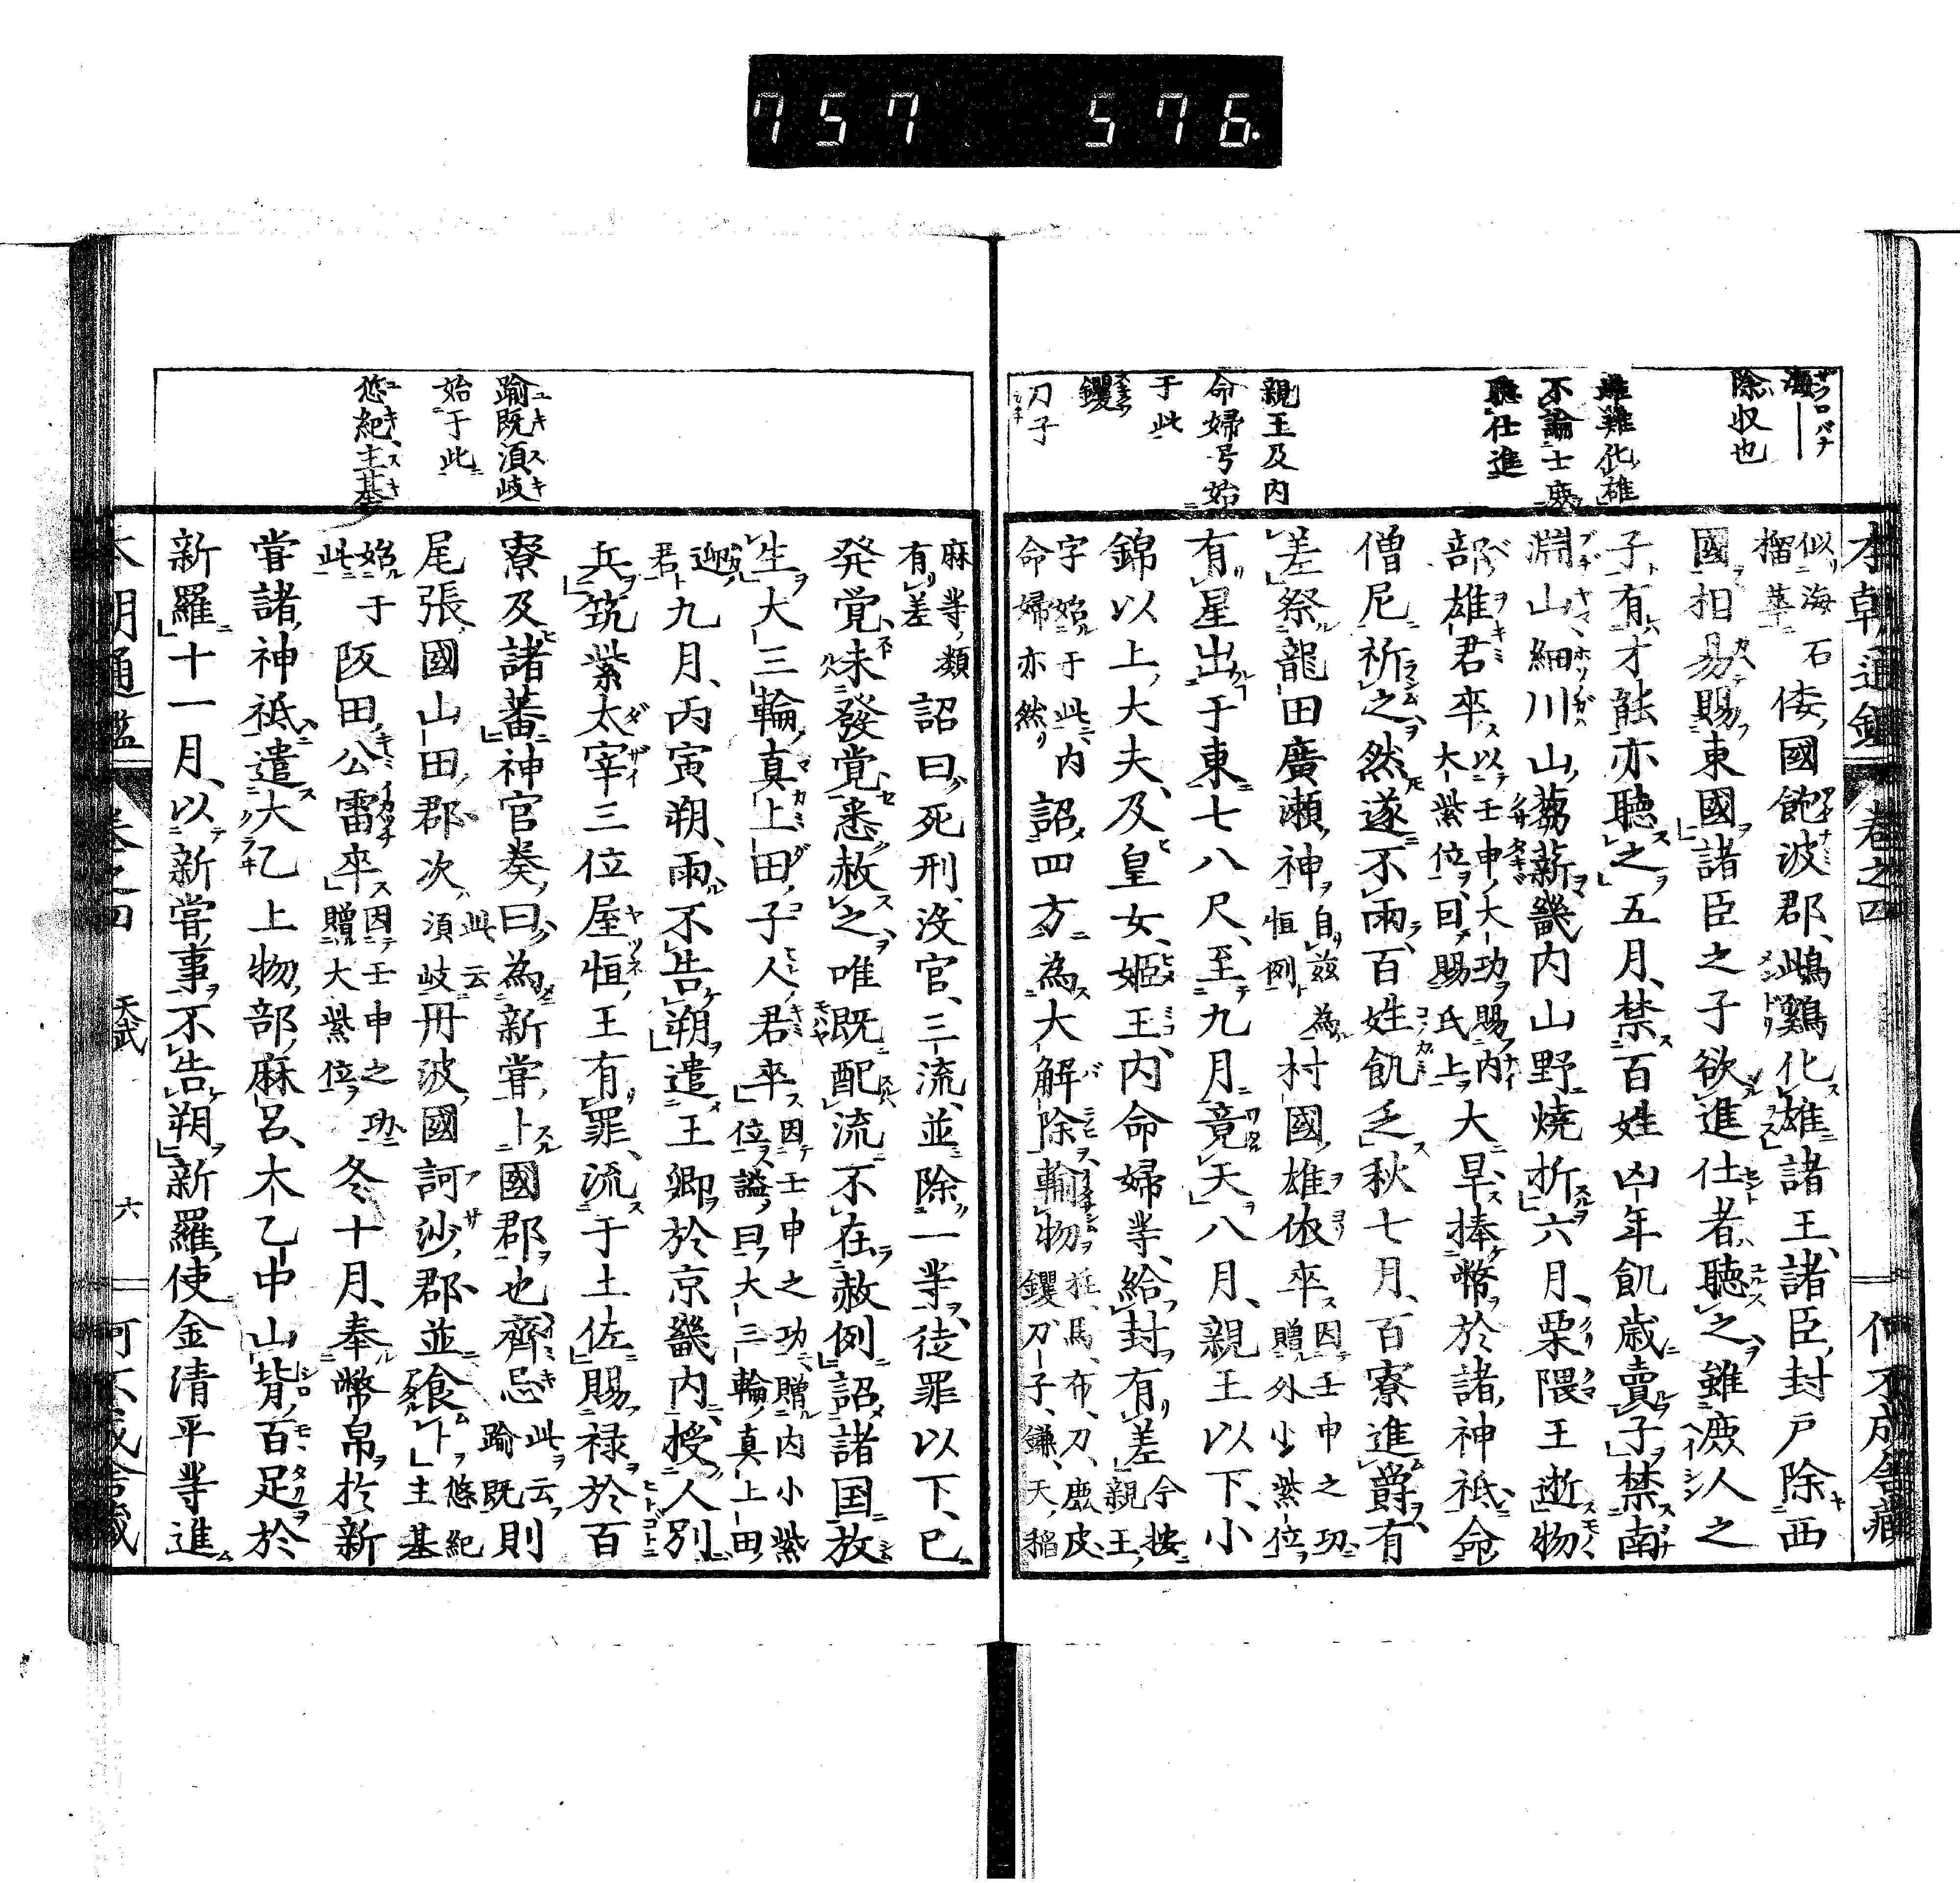 757 576.
本朝通鑑 卷之四 何不成舍藏
海
除収也
雌雞化雄
不論士庶
聽仕進
親王及内
命婦号始
于此
钁
刀子
似海石
榴華 倭國飽波郡、雌雞化雄諸王、諸臣、封戸除西
國相易賜東國諸臣之子欲進仕者、聽之雖庶人之
子有才能亦聽之五月、禁百姓凶年飢歳賣子禁南
淵山細川山蒭薪畿内山野燒折六月、栗隈王逝物
部雄君卒以壬申大功賜内
大紫位回賜氏上大旱捧幣於諸神祇命
僧尼祈之然遂不雨百姓飢乏秋七月、百寮進爵有
差祭龍田廣瀬神自茲為
恒例 村國雄依卒因壬申之功
贈外小紫位
有星出于東七八尺、至九月竟天八月、親王以下、小
錦以上大夫、及皇女、姫王、内命婦䓁、給封有差今按
親王
字始于此内
命婦亦然 詔四方為大解除輸物
馬、布、刀、鹿皮
钁、刀子、鎌、矢、稲
麻䓁類
有差 詔曰死刑、沒官、三流、並除一䓁徒罪以下、已
発覚未發覚悉赦之唯既配流不在赦例詔諸国放
生大三輪真上田子人君卒因壬申之功贈内小紫
位謚曰大三輪真上田
迎
君 九月、丙寅朔、雨不告朔遣王卿於京畿内授人別
兵筑紫太宰三位屋恒王有罪、流于土佐賜禄於百
寮及諸蕃神官奏曰為新嘗卜國郡也齊忌此云
踰既 則
尾張國山田郡次此云
須岐 丹波國訶沙郡並食卜悠紀
主基
始于
此 阪田公雷卒因壬申之功
贈大紫位 冬十月、奉幣帛於新
嘗諸神祇遣大乙上物部麻呂、大乙中山背百足於
新羅十一月、以新嘗事不告朔新羅使金清平䓁進
踰既須岐
始于此
悠紀主基
本朝通鑑 卷之四 天武 六 何不成舍藏